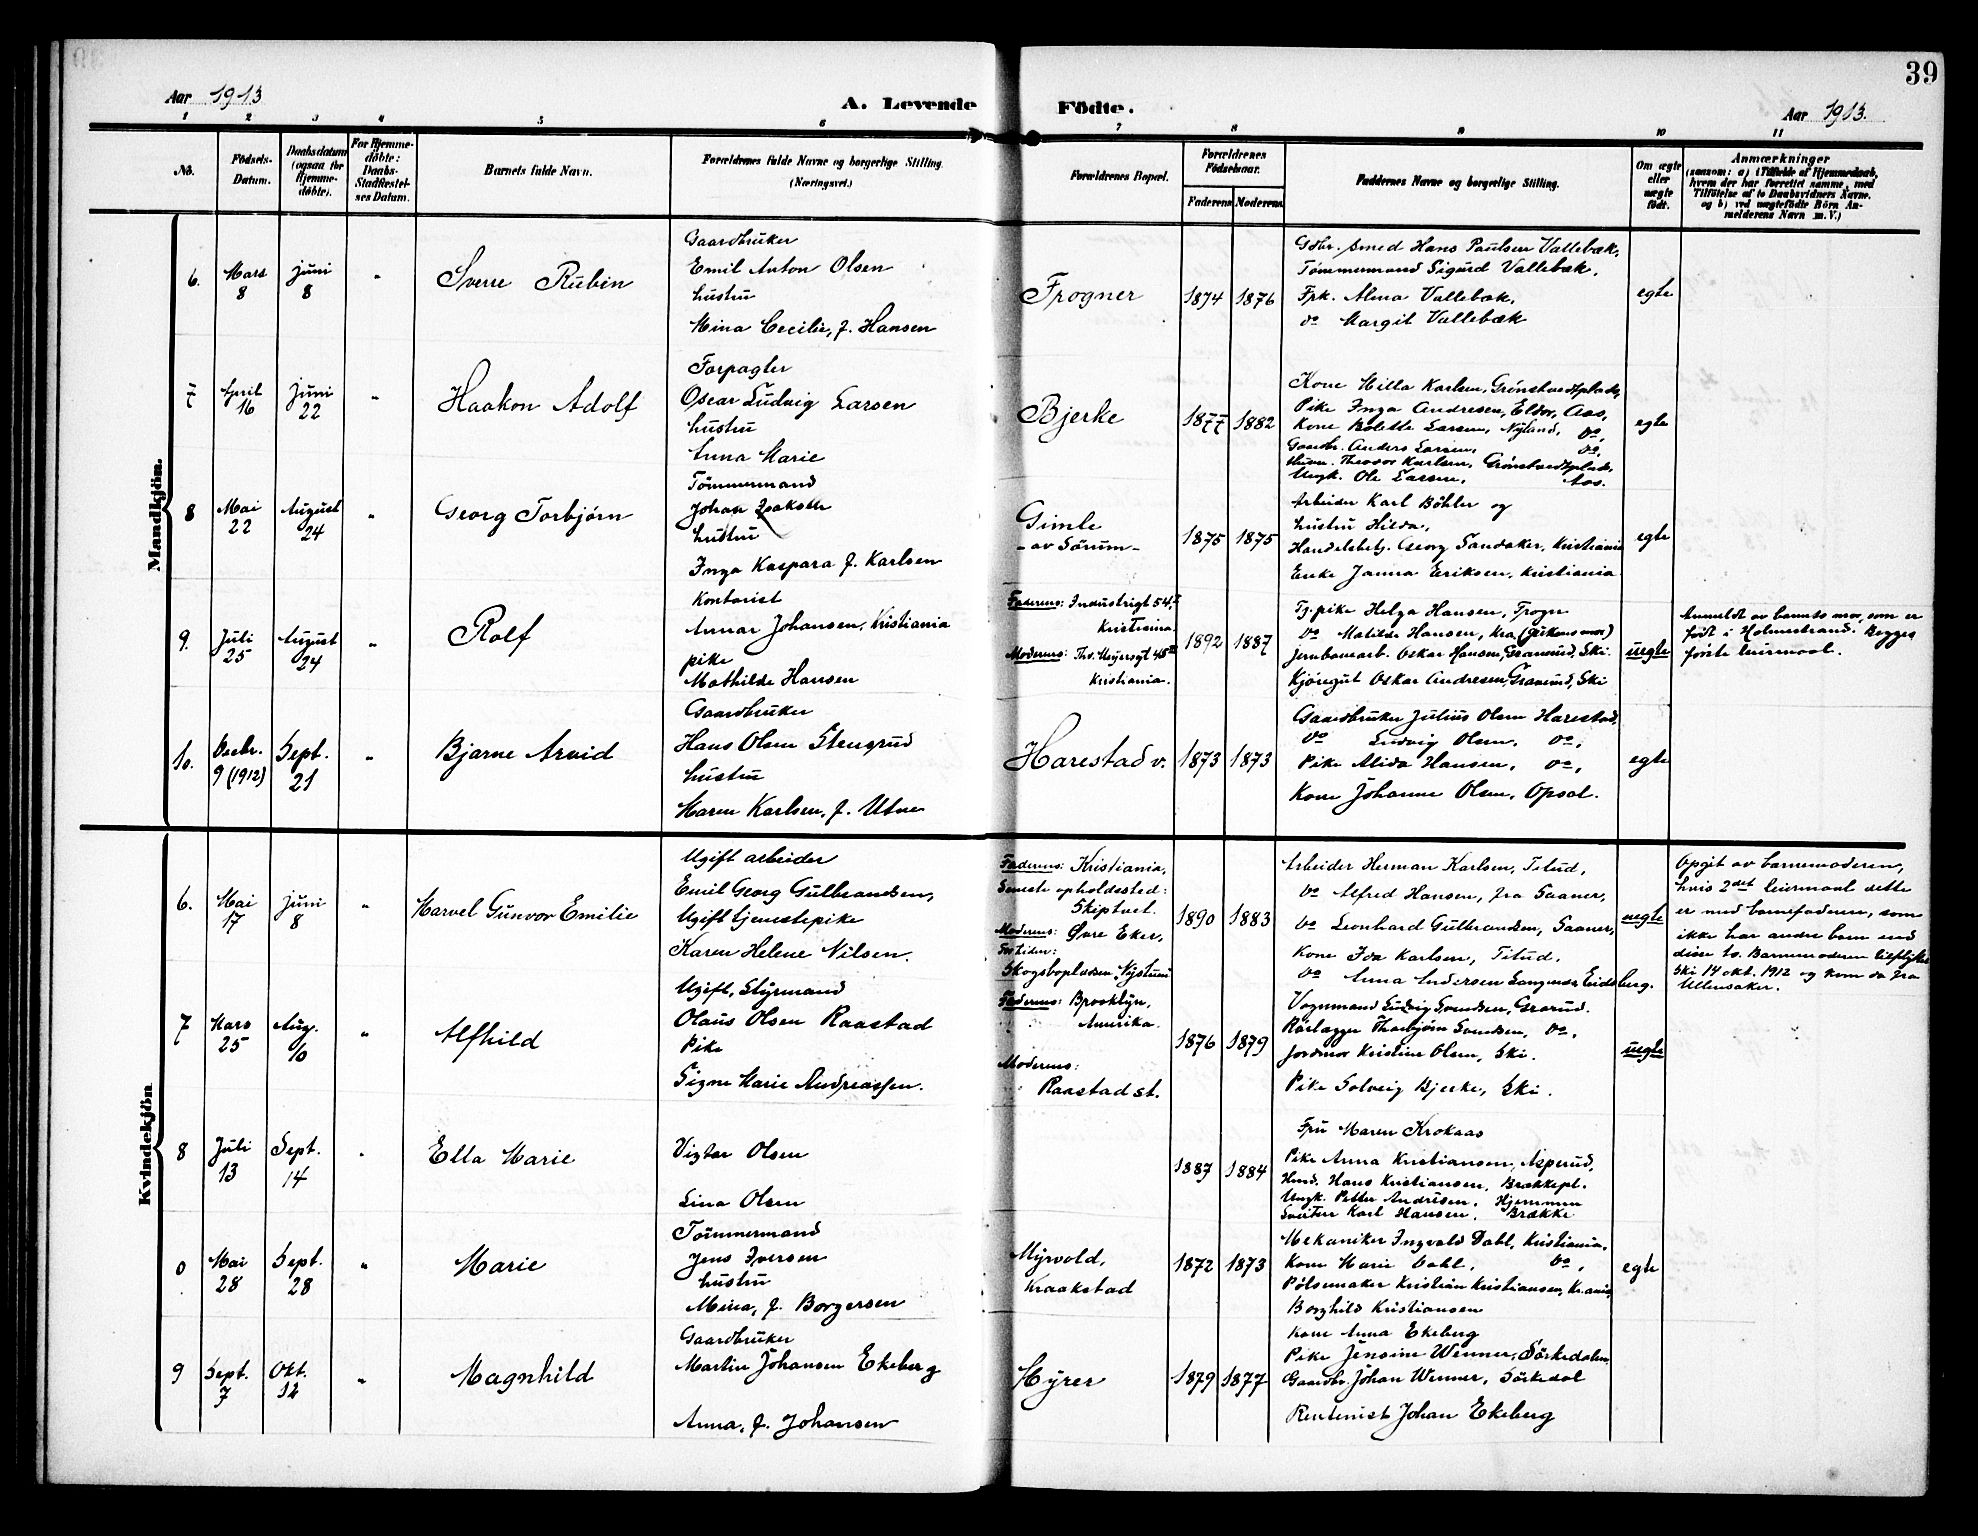 39
Aar 1913
A. Levende Födte.
Aar 1913.
1 2 3 4 5 6 7 8 9 10 11
No.
Födsels-
Datum.
Daabsdatum
(ogsaa for
Hjemme-
döbte).
For Hjemme-
döbte:
Daabs-
Stadfæstel-
ses Datum.
Barnets fulde Navn.
Forældrenes fulde Navne og borgerlige Stilling.
(Næringsvei.)
Forældrenes Bopæl.
Forældrenes
Födselsaar.
Faderens Moderens
Faddernes Navne og borgerlige Stilling.
Om ægte
eller
uægte
födt.
Anmærkninger
(saasom: a) i Tilfælde af Hjemmedaab,
hvem der har forrettet samme, med
Tilföielse af to Daabsvidners Navne.
og b) ved uægtefödte Börn An-
melderens Navn m. V.)
Mandkjön.
6.
Mars
8
Juni
8
"
Sverre Rubin
Gaardbruker
Emil Anton Olsen
hustru
Mina Cecilie, f. Hansen
Frogner
1874 1876
Gdbr. smed Hans Paulsen Vallebæk,
Tømmermand Sigurd Vallebæk,
Frk. Alma Vallebæk,
do Margit Vallebæk
egte
7
April
16
Juni
22
"
Haakon Adolf
Forpagter
Oscar Ludvig Larsen
hustru
Anna Marie
Bjerke
1877 1882
Kone Milla Karlsen, Grønstvedtplads,
Pike Inga Andresen, Eldor, Aas,
Kone Bolette Larsen, Nyland, do,
Gaardbr. Anders Larsen, do,
Theodor Karlsen, Grønstvedtplads,
Ungk. Ole Larsen, Aas.
egte
8
Mai
22
August
24
"
Georg Torbjørn
Tömmermand
Johan Isaksen
hustru
Inga Kaspara f. Karlsen
Gimle
- av Sörum -
1875 1875
Arbeider Karl Böhler og
hustru Hilda,
Handelsbetj. Georg Sandaker, Kristiania
Enke Janna Eriksen, Kristiania
egte
9.
Juli
25
August
24
"
Rolf
Kontorist
Annar Johansen, Kristiania
pike
Mathilde Hansen
Faderens: Industrigt 54,
Kristiania.
Moderens: Th. Meyersgt 45
Kristiania.
1892 1887
Tj.pike Helga Hansen, Frogn
do Matilde Hansen, Kra
Jernbanearb. Oskar Hansen, Ski.
Oskar Andresen, Ski
uegte
Anmeldt av barnets mor, som er
født i Holmestrand. Begges
første leiermaal.
10.
Decbr.
9 (1912)
Sept.
21
"
Bjarne Arvid
Gaardbruker
Hans Olsen Stengrud
hustru
Maren Karlsen, f. Utne
Harestad v.
1873 1873
Gaardbruker Julius Olsen Harestad,
do Ludvig Olsen, do,
Pike Alida Hansen, do,
Kone Johanne Olsen, Opsal.
egte
Kvindekjön
6.
Mai
17
Juni
8
"
Marvel Gunvor Emilie
Ugift arbeider
Emil Georg Gulbrandsen,
Ugift tjenestepike
Karen Helene Nilsen.
Faderens: Kristiania,
Seneste opholdested:
Skiptvet.
Moderens: Øvre Eker,
For tiden:
Skogsbopladsen, Nystuen
1890 1883
Arbeider Herman Karlsen, Titud,
do Alfred Hansen, fra Saaner,
do Leonhard Gulbrandsen, Saaner,
Kone Ida Karlsen, Titud.
do Anna Andersen Eidsberg.
uegte
Opgit av barnemoderen,
hvis 2det leiermaal dette
er med barnefaderen, som
ikke har andre barn end
disse to. Barnemoderen tilflyttet
Ski 14 okt. 1912 og kom da fra
Ullensaker.
7
Mars
25
Aug.
10
"
Alfhild
Ugift, Styrmand
Olaus Olsen Raastad
Pike
Signe Marie Andreassen.
Faderens: Brooklyn,
Amerika.
Moderens:
Raastad st.
1876 1879
Vognmand Ludvig Svendsen, Greverud.
Rørlægger Thorbjørn Svendsen, do,
Jordmor Kristine Olsen, Ski.
Pike Solveig Bjerke, Ski.
uegte
8
Juli
13
Sept.
14
"
Ella Marie
Viktor Olsen
Lina Olsen
1887 1884
Fru Maren Krokaas
Pike Anna Kristiansen, Asperud,
Hans Kristiansen, Brækkepl.
Ungk. Petter Andrésen, Hjemmen
Karl Hansen, Brække
0
Mai
28
Sept.
28
"
Marie
Tömmermand
Jens Iversen
hustru
Mina, f. Borgersen
Myrvold,
Kraakstad
1872 1873
Mekaniker Ingvald Dahl, Kristiania,
Kone Marie Dahl, do,
Pölsemaker Kristian Kristiansen, Kr.ania,
Borghild Kristiansen
egte
9
Sept.
7
Okt.
12
"
Magnhild
Gaardbruker
Martin Johansen Ekeberg
Anna, f. Johansen
Myrer
1879 1877
Kone Anna Ekeberg
Pike Jensine Wenner, Sörkedalen
Gaardbr. Johan Wenner, Sörkedal
Rentenist Johan Ekeberg